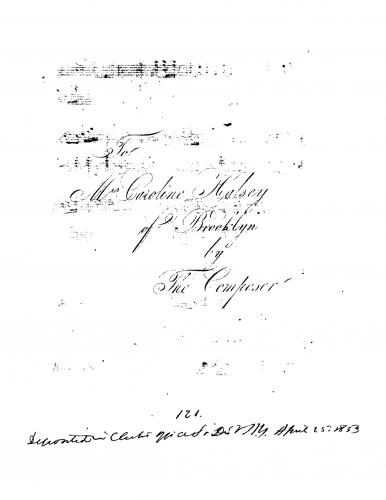 To
Mrs Caroline Halsey
of Brooklyn
by
The Composer
121.
Deposited in Clerks Office So. Dist N.Y. April 25. 1853